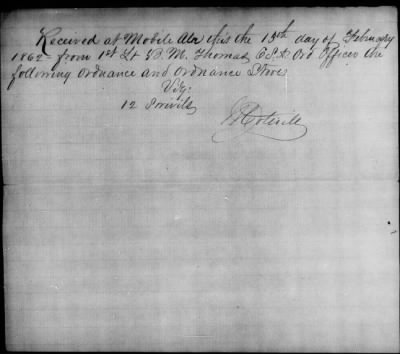 Received at Mobile Ala this the 13th day of February
1862 from 1st Lt B. M. Thomas C.S.A Ord Officer the
following Ordnance and Ordnance Stores
Viz:
12 Swivels